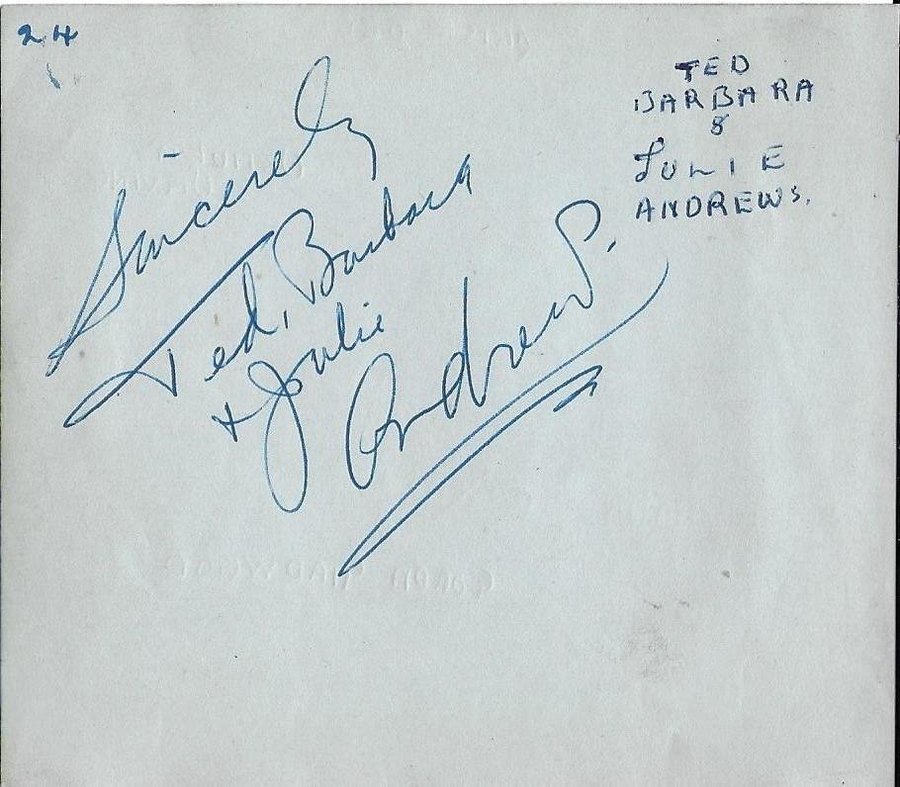 24
TED
BARBARA
&
JULIE
ANDREWS.
Sincerely
Ted, Barbara
+ Julie
Andrews.